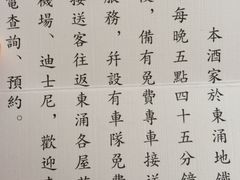 本酒家於東涌地鐵
每晚五點四十五分鐘
，備有免費專車接送
服務，并設有車隊免費
接送客往返東涌各屋
機場、迪士尼，歡迎
電查詢、預約。